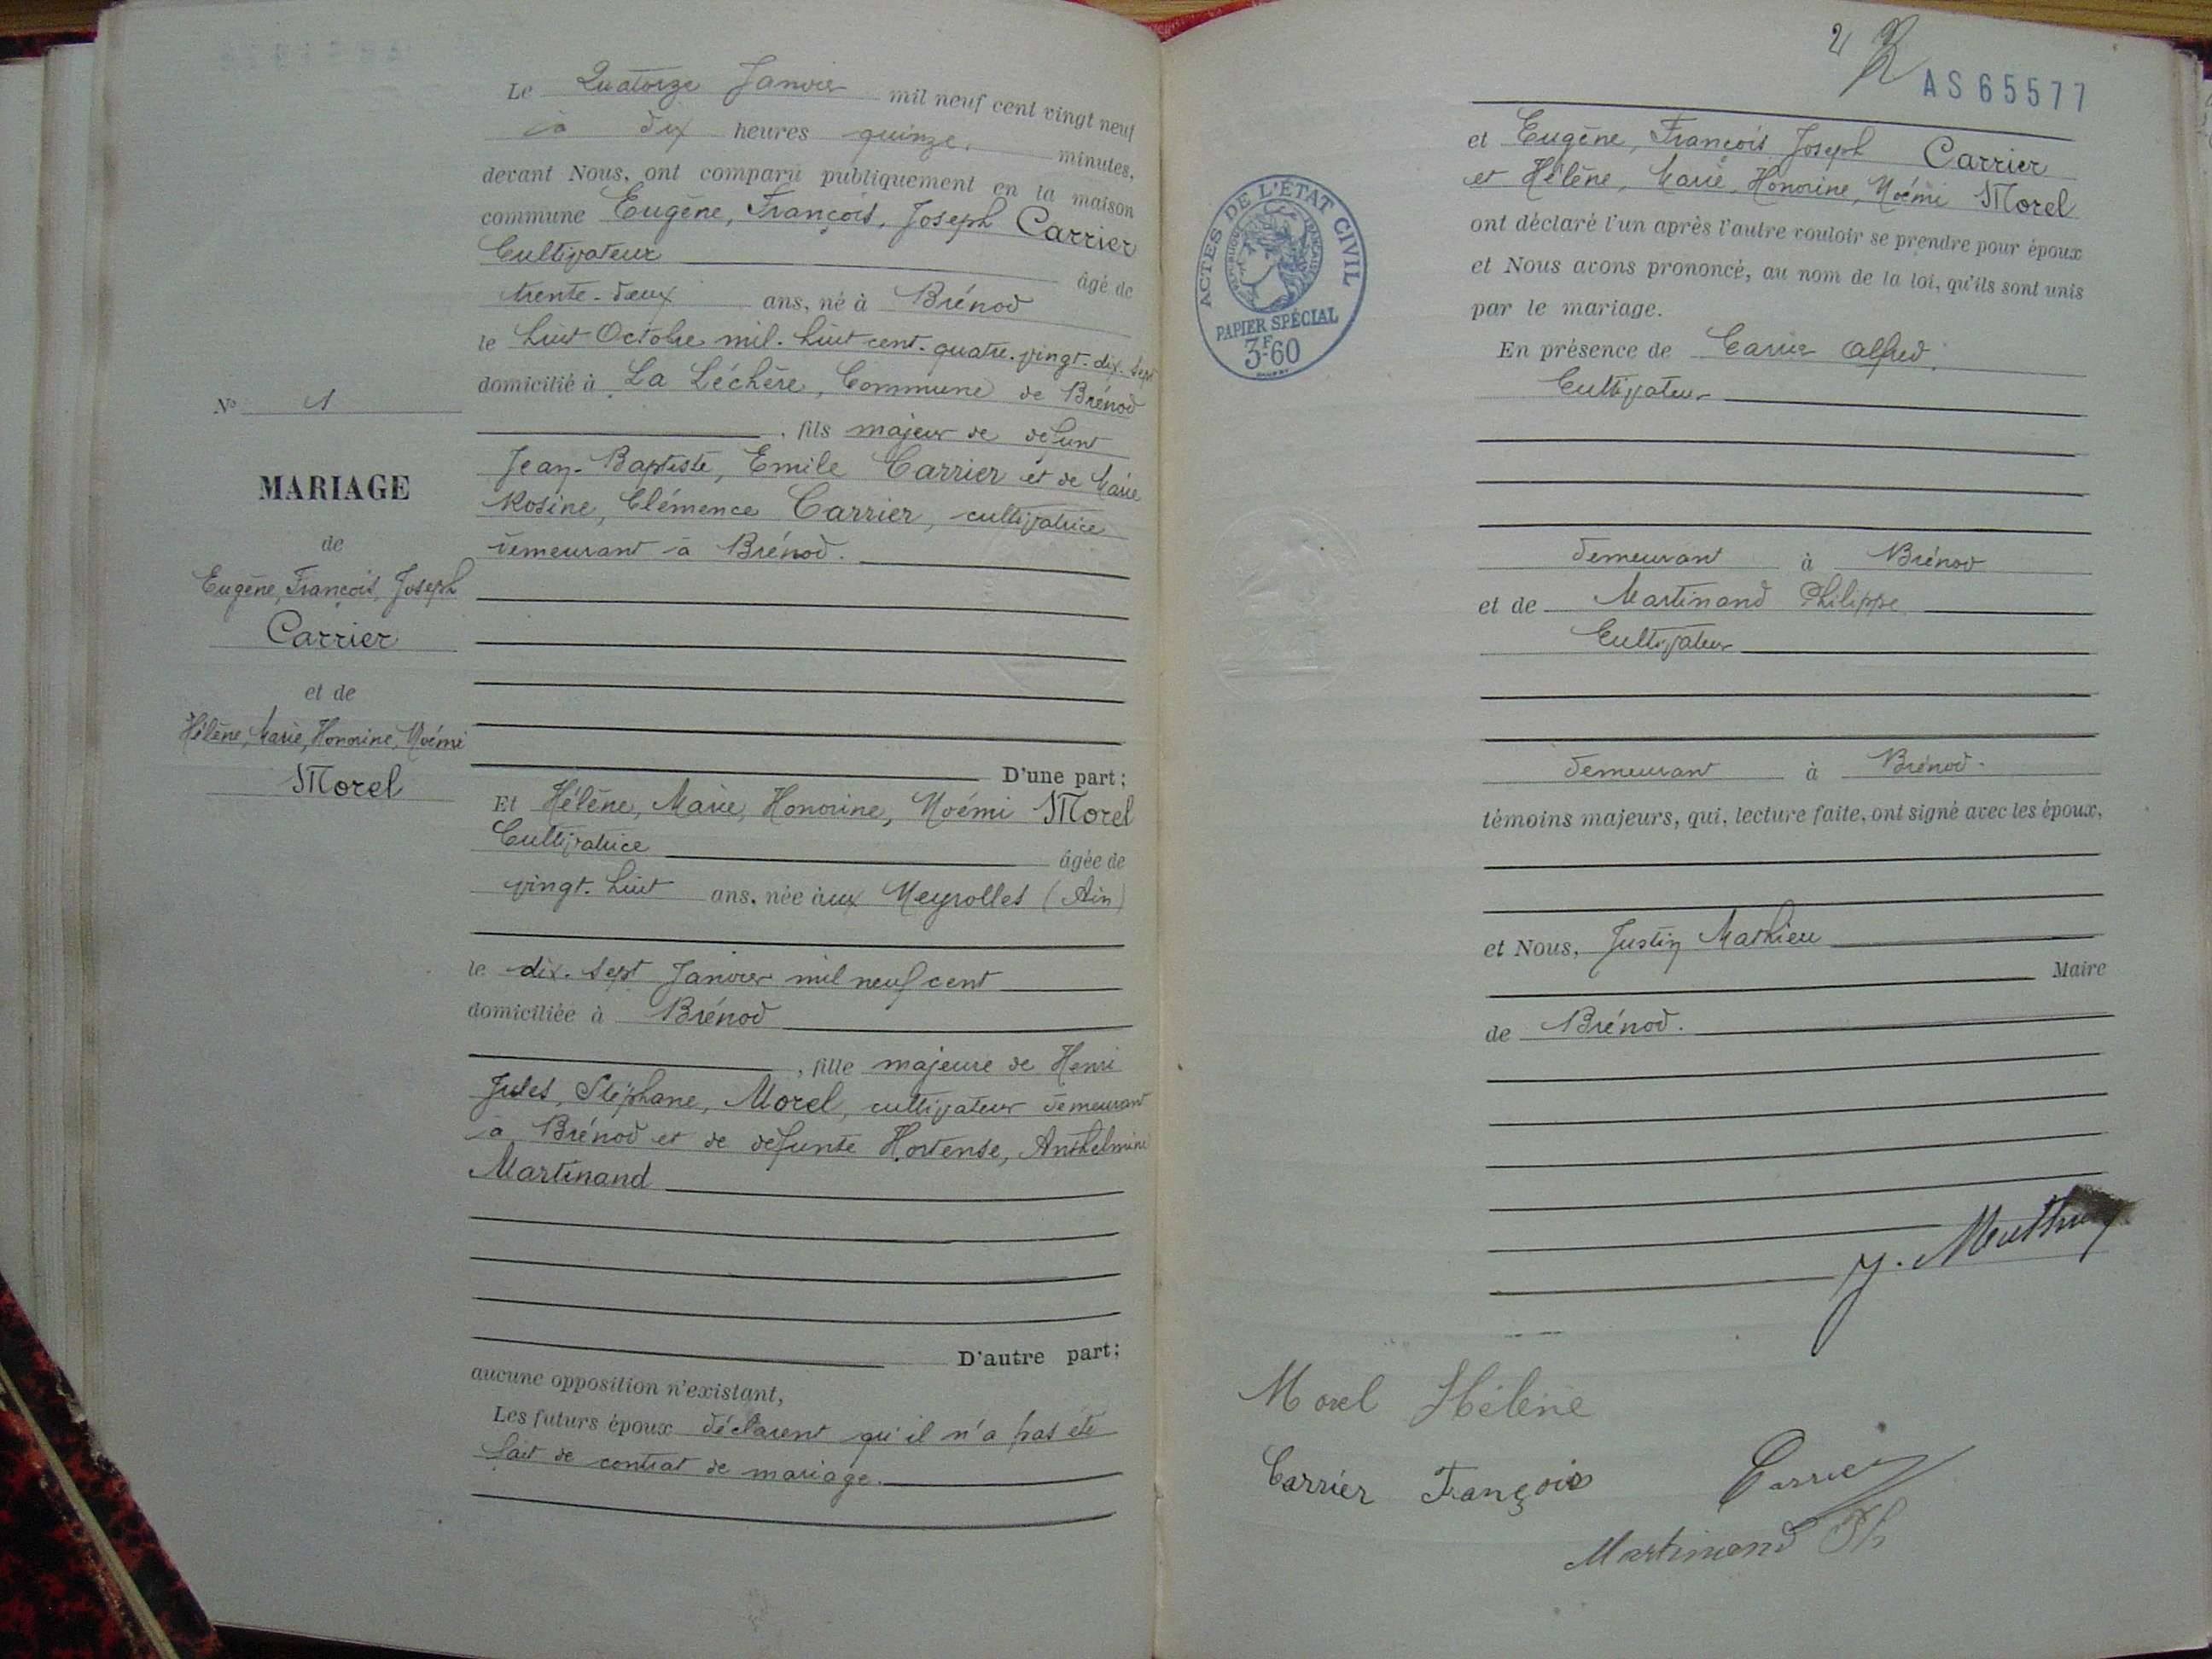 Le Quatorze Janvier mil neuf cent vingt neuf
à dix heures quinze, minutes,
devant Nous, ont comparu publiquement en la maison
commune Eugène, François, Joseph Carrier
Cultivateur âgé de
trente-deux ans, né à Brénod
le huit Octobre mil-huit cent-quatre-vingt-dix-sept
domicilié à La Léchère, Commune de Brénod
, fils majeur de défunt
Jean-Baptiste, Emile Carrier et de Marie
Rosine, Clémence Carrier, cultivatrice
demeurant à Brénod.
D'une part;
Et Hélène, Marie, Honorine, Noémi Morel
Cultivatrice âgée de
vingt-huit ans, née aux Neyrolles (Ain)
le dix-sept Janvier mil neuf cent
domiciliée à Brénod
, fille majeure de Henri
Jules, Stéphane, Morel, cultivateur demeurant
à Brénod et de défunte Hortense, Anthelmine
Martinand
D'autre part;
aucune opposition n'existant,
Les futurs époux déclarent qu'il n'a pas été
fait de contrat de mariage.
No 1
MARIAGE
de
Eugène, François, Joseph
Carrier
et de
Hélène, Marie, Honorine, Noémi
Morel
2
AS65577
et Eugène, François Joseph Carrier
et Hélène, Marie, Honorine, Noémi Morel
ont déclaré l'un après l'autre vouloir se prendre pour époux
et Nous avons prononcé, au nom de la loi, qu'ils sont unis
par le mariage.
En présence de Carrier Alfred,
Cultivateur
demeurant à Brénod
et de Martinand Philippe
Cultivateur
demeurant à Brénod.
témoins majeurs, qui, lecture faite, ont signé avec les époux,
et Nous, Justin Mathieu
Maire
de Brénod.
ACTES DE L'ÉTAT CIVIL
RÉPUBLIQUE FRANÇAISE
PAPIER SPÉCIAL
3F60
Morel Hélène
Carrier François
Carrier
Martinand Ph